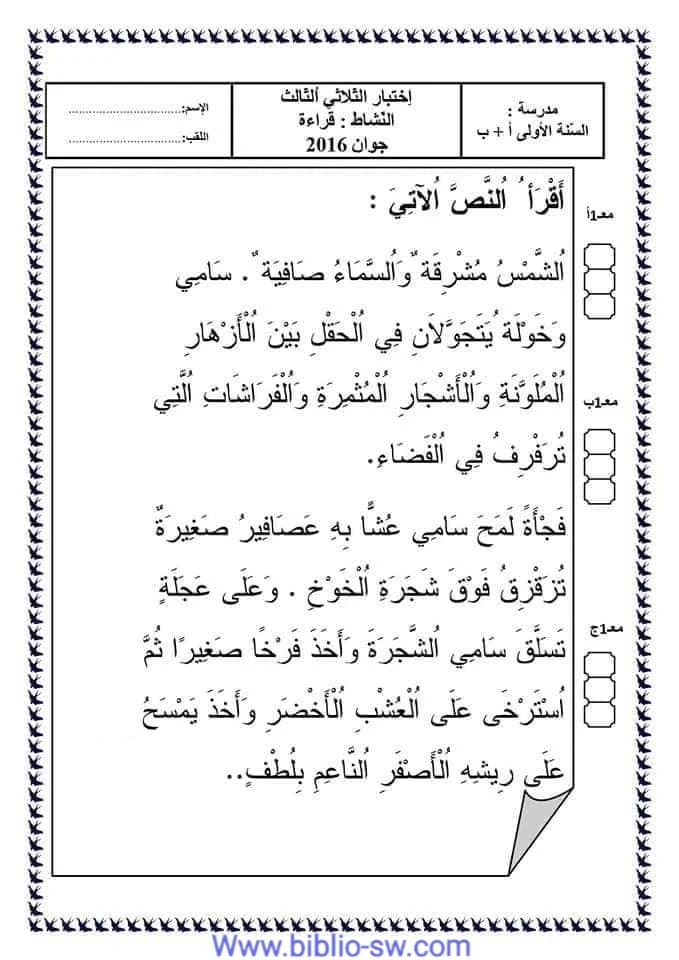 مدرسة :
السّنة الأولى أ + ب
إختبار الثّلاثي اُلثّالث
النّشاط : قراءة
جوان 2016
الإسم:................................
اللقب:................................
أَقْرَأ ُ اُلنَّصَّ اُلآتِيَ :
معـ1أ
اُلشَّمْسُ مُشْرِقَة ٌ وَاُلسَّمَاءُ صَافِيَة ٌ . سَامِي
وَخَوْلَة ُيَتَجَوَّلاَنِ فِي اُلْحَقْلِ بَيْنَ اُلْأَزْهَارِ
اُلْمُلَوَّنَةِ وَاُلْأَشْجَارِ اُلْمُثْمِرَةِ وَاُلْفَرَاشَاتِ اُلَّتِي
معـ1ب
تُرَفْرِفُ فِي اُلْفَضَاءِ.
فَجْأَةً لَمَحَ سَامِي عُشًّا بِهِ عَصَافِيرُ صَغِيرَةٌ
تُزَقْزِقُ فَوْقَ شَجَرَةِ اُلْخَوْخِ . وَعَلَى عَجَلَةٍ
معـ1ج
تَسَلَّقَ سَامِي اُلشَّجَرَةَ وَأَخَذَ فَرْخًا صَغِيرًا ثُمَّ
اُسْتَرْخَى عَلَى اُلْعُشْبِ اُلْأَخْضَرِ وَأَخَذَ يَمْسَحُ
عَلَى رِيشِهِ اُلْأَصْفَرِ اُلنَّاعِمِ بِلُطْفٍ..
Www.biblio-sw.com